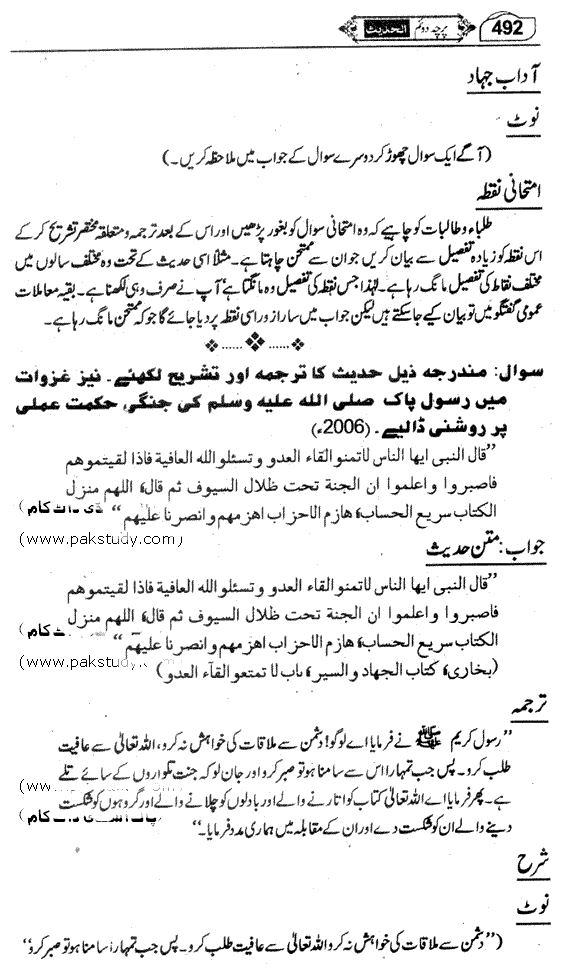 492
پرچہ دوئم
الحدیث
آداب جہاد
نوٹ
(آگے ایک سوال چھوڑ کر دوسرے سوال کے جواب میں ملاحظہ کریں۔)
امتحانی نقطہ
طلباء و طالبات کو چاہیے کہ وہ امتحانی سوال کو بغور پڑھیں اور اس کے بعد ترجمہ و متعلقہ مختصر تشریح کر کے
اس نقطہ کو زیادہ تفصیل سے بیان کریں جو ان سے ممتحن چاہتا ہے۔ مثلاً اسی حدیث کے تحت وہ مختلف سالوں میں
مختلف نقاط کی تفصیل مانگ رہا ہے۔ لہٰذا جس نقطہ کی تفصیل وہ مانگتا ہے‘ آپ نے صرف وہی لکھنا ہے۔ بقیہ معاملات
عمومی گفتگو میں تو بیان کیے جا سکتے ہیں لیکن جواب میں سارا زور اسی نقطہ پر دیا جائے گا جو کہ ممتحن مانگ رہا ہے۔
سوال: مندرجہ ذیل حدیث کا ترجمہ اور تشریح لکھئے۔ نیز غزوات
میں رسول پاک صلی اللہ علیہ وسلم کی جنگی حکمت عملی
پر روشنی ڈالیے۔ (2006ء)
”قال النبی ایھا الناس لاتمنو القاء العدو و تسئلو الله العافیة فاذا لقیتموهم
فاصبروا و اعلموا ان الجنة تحت ظلال السیوف ثم قال‘ اللهم منزل
الکتاب سریع الحساب‘ هازم الاحزاب اهزمهم و انصرنا علیهم“
(www.pakstudy.com)
جواب: متن حدیث
”قال النبی ایھا الناس لاتمنو القاء العدو و تسئلو الله العافیة فاذا لقیتموهم
فاصبروا و اعلموا ان الجنة تحت ظلال السیوف ثم قال‘ اللهم منزل
الکتاب سریع الحساب‘ هازم الاحزاب اهزمهم و انصرنا علیهم“
کام)
(بخاری‘ کتاب الجهاد والسیر‘ باب لا تمتعو القآء العدو)
(www.pakstudy.
ترجمہ
”رسول کریم ﷺ نے فرمایا اے لوگو! دشمن سے ملاقات کی خواہش نہ کرو، اللہ تعالیٰ سے عافیت
طلب کرو۔ پس جب تمہارا اس سے سامنا ہو تو صبر کرو اور جان لو کہ جنت تلواروں کے سائے تلے
ہے۔ پھر فرمایا اے اللہ تعالیٰ کتاب کو اتارنے والے اور بادلوں کو چلانے والے اور گروہوں کو شکست
دینے والے ان کو شکست دے اور ان کے مقابلہ میں ہماری مدد فرمایا۔“
(www.
کام)
شرح
نوٹ
(”دشمن سے ملاقات کی خواہش نہ کرو اللہ تعالیٰ سے عافیت طلب کرو۔ پس جب تمہارا سامنا ہو تو صبر کرو“